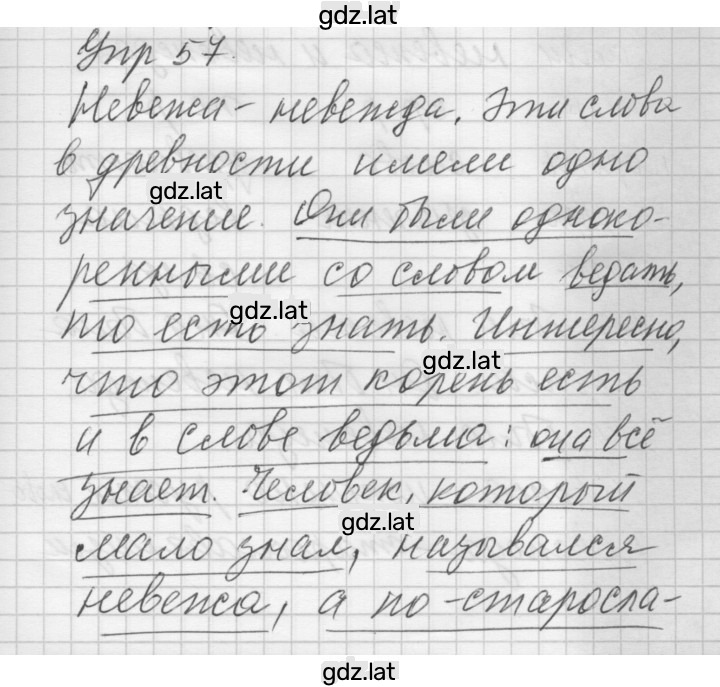 gdz.lat
Упр 57.
Невежа - невежда. Эти слова
в древности имели одно
gdz.lat
значение. Они были одноко-
ренными со словом ведать,
gdz.lat
то есть знать. Интересно,
gdz.lat
что этот корень есть
и в слове ведьма: она всё
знает. Человек, который
gdz.lat
мало знал, назывался
невежа, а по-старосла-
gdz.lat